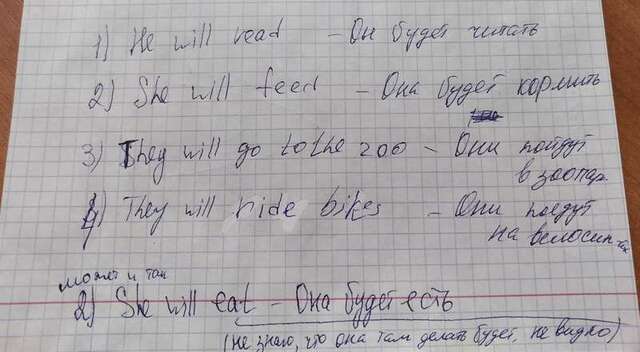 1) He will read – Он будет читать
2) She will feed – Она будет кормить
3) They will go to the zoo – Они пойдут
в зоопар.
4) They will ride bikes – Они поедут
на велосип
может и так
2) She will eat – Она будет есть
(не знаю, что она там делать будет, не видно)